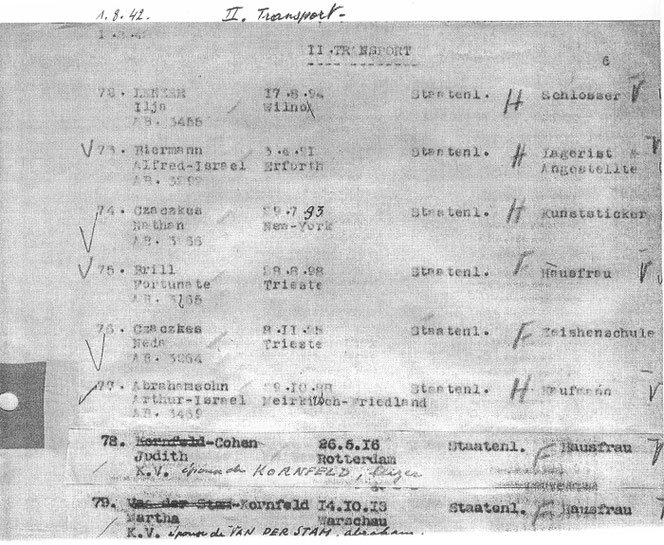 1.8.42. II. Transport-
II.TRANSPORT
6
72. 17.8.94 Staatenl. H Schlosser V
Ilja Wilno
AB. 3455
V 73. Biermann 3.6.91 Staatenl. H Lagerist &
Alfred-Israel Erforth Angestellte
AB.
74. Czaczkes 29.7.93 Staatenl. H Kunststicker
Nathan New-York
AB.
V 75. Brill 28.8.98 Staatenl. F Hausfrau V
Fortunate Trieste
AB. 3265
76. Czaczkes 8.11.25 Staatenl. F Zeishenschule
Neda Trieste
AB. 3264
77. Abrahamsohn 29.10.88 Staatenl. H Kaufmann V
Arthur-Israel Meirkitch-Friedland
AB. 3459
78. Kornfeld-Cohen 26.5.16 Staatenl. F Hausfrau V
Judith Rotterdam
K.V. épouse de KORNFELD,
79. Van der Stam-Kornfeld 14.10.13 Staatenl. F Hausfrau V
Martha Warschau
K.V. épouse de VAN DER STAM, abraham.